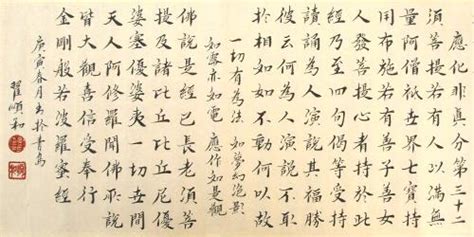 應化非真分第三十二
須菩提若有人以滿無
量阿僧祇世界七寶持
用布施若有善男子善女
人發菩提心者持於此
經乃至四句偈等受持
讀誦為人演說其福勝
彼云何為人演說不取
於相如如不動何以故
一切有為法 如夢幻泡影
如露亦如電 應作如是觀
佛說是經已長老須菩
提及諸比丘比丘尼優
婆塞優婆夷一切世間
天人阿修羅聞佛所說
皆大歡喜信受奉行
金剛般若波羅蜜經
庚寅春月書於青島
翟順和